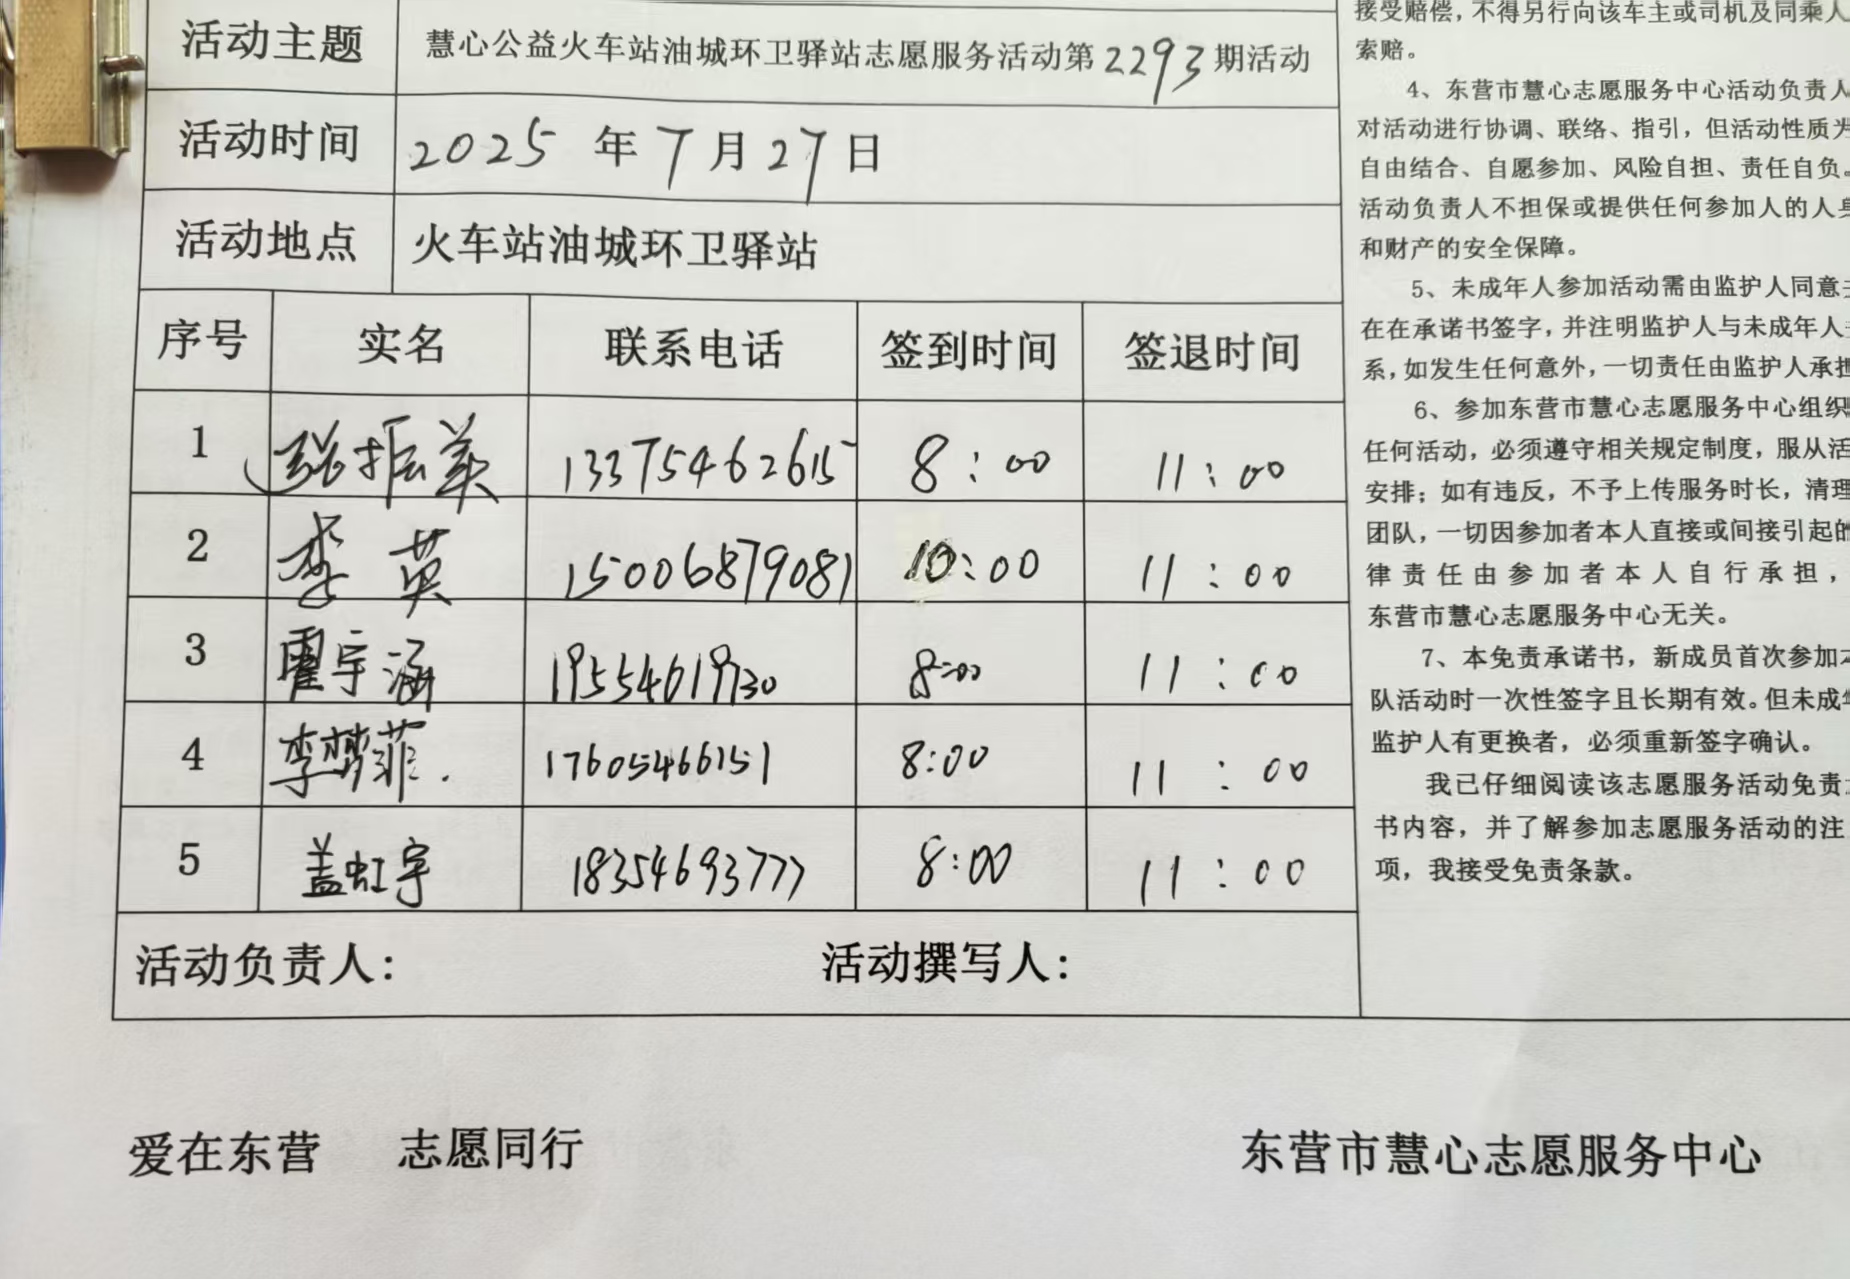 活动主题 慧心公益火车站油城环卫驿站志愿服务活动第2293期活动
活动时间 2025年7月27日
活动地点 火车站油城环卫驿站
序号 实名 联系电话 签到时间 签退时间
1 张振英 13375462615 8:00 11:00
2 李英 15006879081 10:00 11:00
3 霍宇涵 19554619730 8:00 11:00
4 李梦菲. 17605466151 8:00 11:00
5 盖虹宇 18354693777 8:00 11:00
活动负责人: 活动撰写人:
接受赔偿,不得另行向该车主或司机及同乘人
索赔。
4、东营市慧心志愿服务中心活动负责人
对活动进行协调、联络、指引,但活动性质为
自由结合、自愿参加、风险自担、责任自负。
活动负责人不担保或提供任何参加人的人身
和财产的安全保障。
5、未成年人参加活动需由监护人同意
在在承诺书签字,并注明监护人与未成年人
系,如发生任何意外,一切责任由监护人承担
6、参加东营市慧心志愿服务中心组织
任何活动,必须遵守相关规定制度,服从活
安排;如有违反,不予上传服务时长,清理
团队,一切因参加者本人直接或间接引起的
律责任由参加者本人自行承担,
东营市慧心志愿服务中心无关。
7、本免责承诺书,新成员首次参加本
队活动时一次性签字且长期有效。但未成年
监护人有更换者,必须重新签字确认。
我已仔细阅读该志愿服务活动免责
书内容,并了解参加志愿服务活动的注
项,我接受免责条款。
爱在东营 志愿同行
东营市慧心志愿服务中心